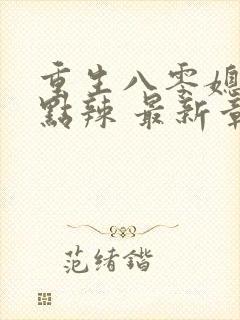 重生八零媳
點辣 最新章
范绪鍇